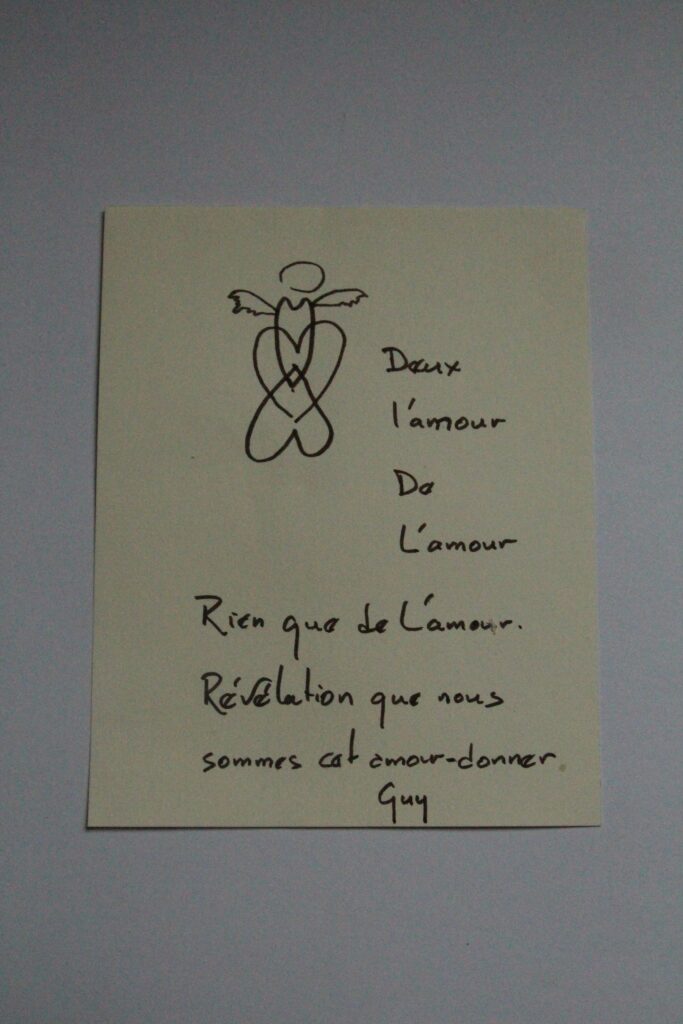 Deux
l'amour
De
L'amour
Rien que de L'amour.
Révélation que nous
sommes cet amour-donner.
Guy